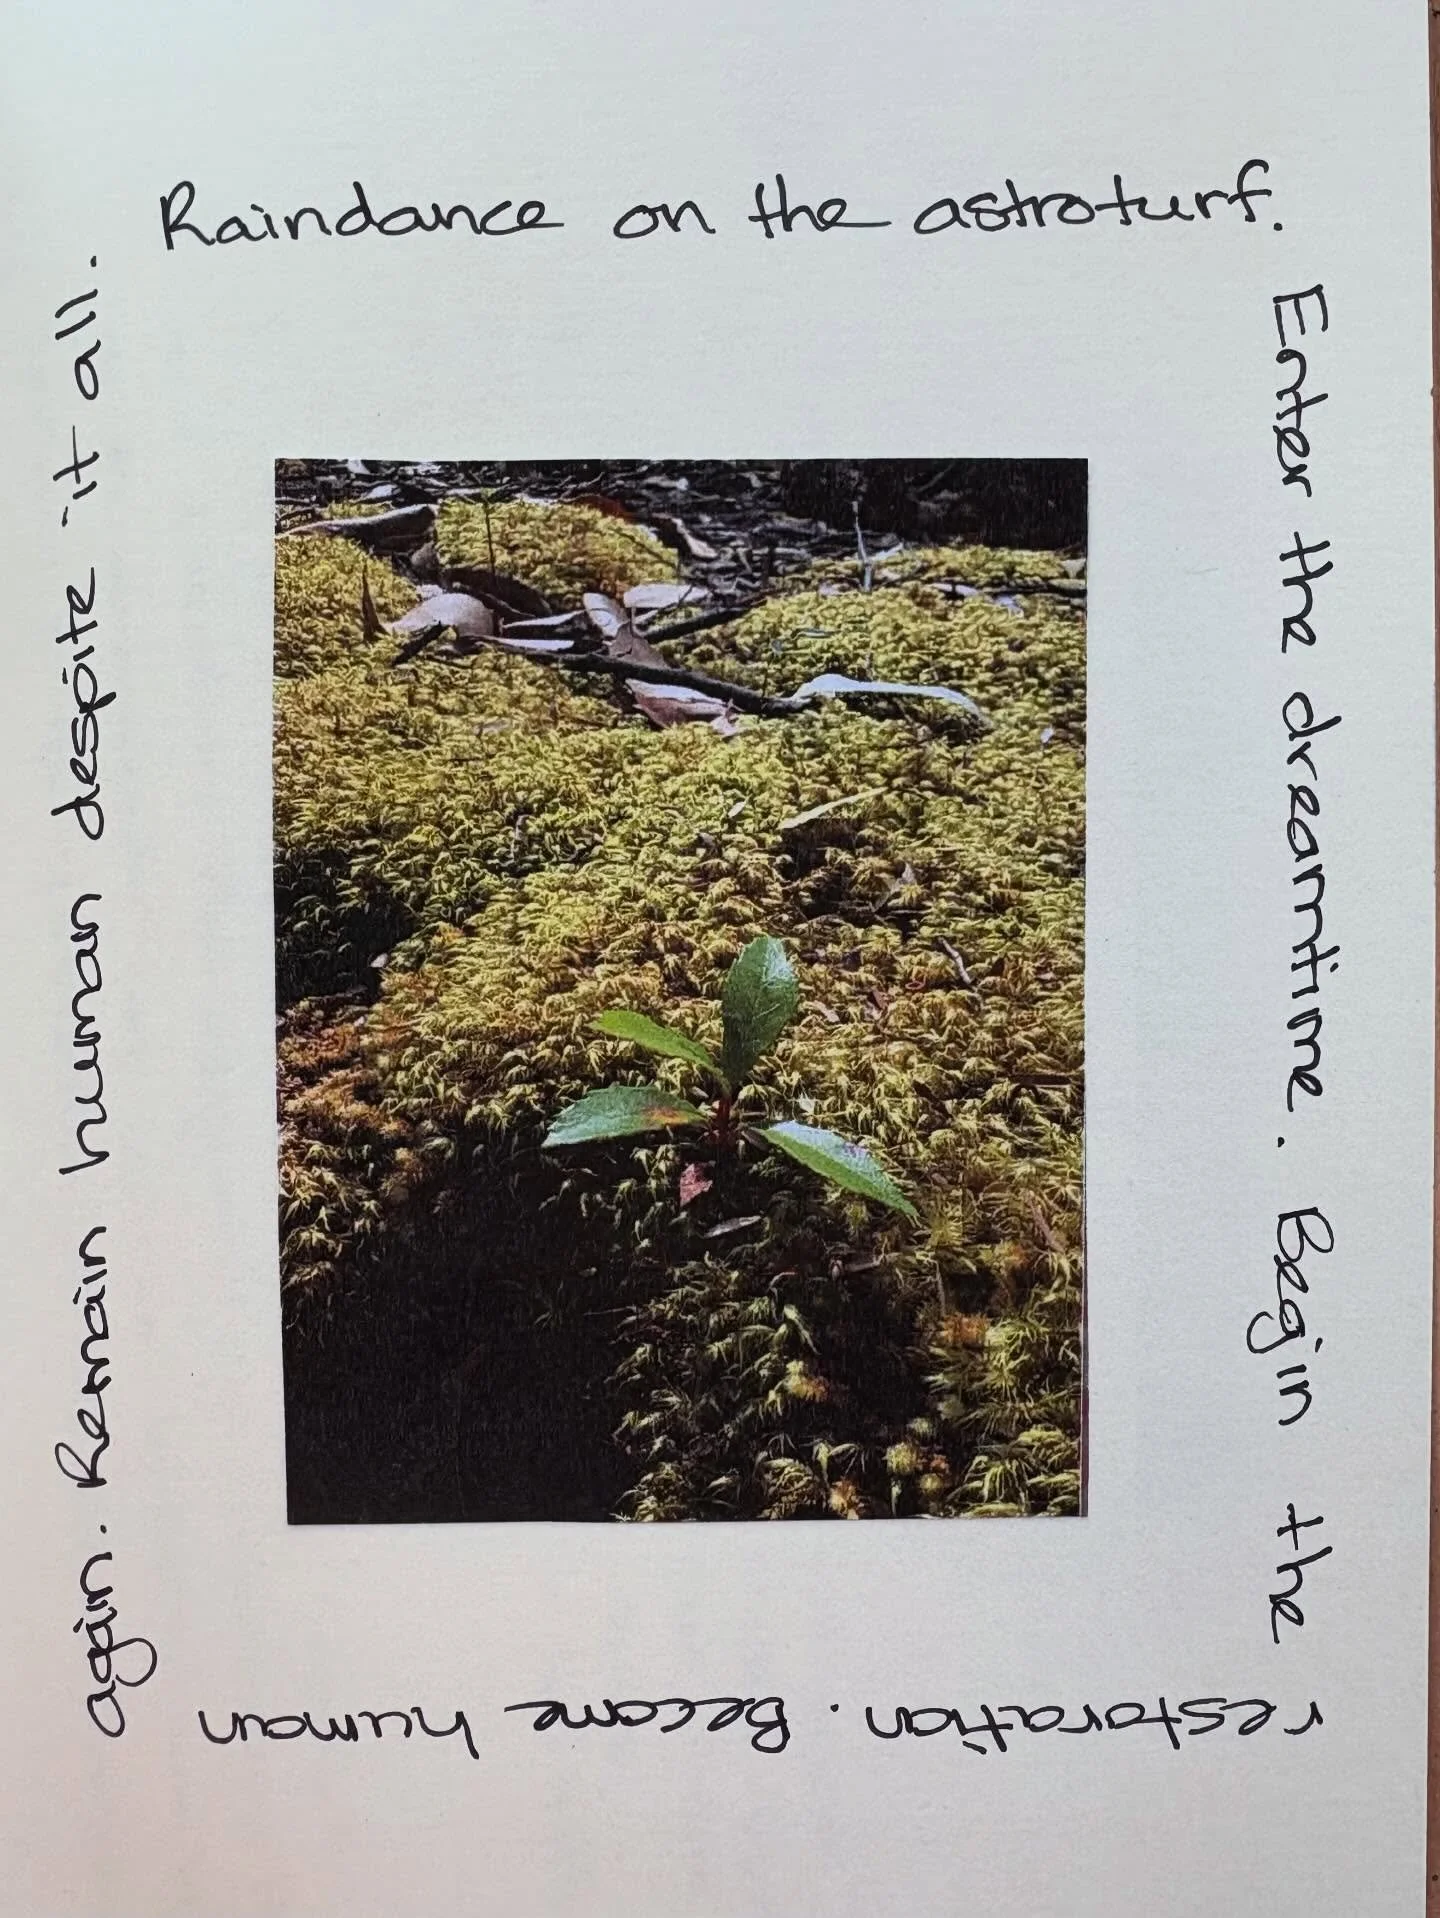 Raindance on the astroturf.
Enter the dreamtime. Begin the
restoration. Become human
again. Remain human despite it all.